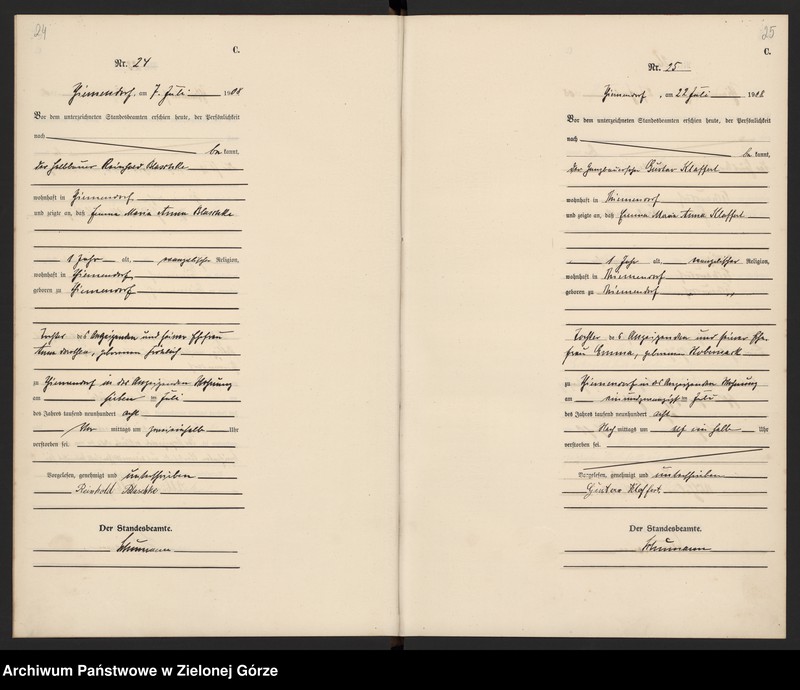 24
C.
Nr. 24
Ziemendorf, am 7. Juli 1908
Vor dem unterzeichneten Standesbeamten erschien heute, der Persönlichkeit
nach
bekannt,
der Reinhold Blaschke
wohnhaft in Ziemendorf
und zeigte an, daß Emma Maria Anna Blaschke
1 Jahr alt, evangelischer Religion,
wohnhaft in Ziemendorf
geboren zu Ziemendorf
Tochter des Anzeigenden und seiner Ehefrau
Anna Dorothea, geborenen
zu Ziemendorf in des Anzeigenden Wohnung
am sieben ten Juli
des Jahres tausend neunhundert acht
Vor mittags um Uhr
verstorben sei.
Vorgelesen, genehmigt und unterschrieben
Reinhold Blaschke
Der Standesbeamte.
25
C.
Nr. 25
Ziemendorf, am 22 Juli 1908
Vor dem unterzeichneten Standesbeamten erschien heute, der Persönlichkeit
nach
bekannt,
der Gustav Klaffert
wohnhaft in
und zeigte an, daß Emma Marie Anna Klaffert
1 Jahr alt, evangelischer Religion,
wohnhaft in
geboren zu
Tochter des Anzeigenden und seiner Ehe-
frau Emma, geborenen
zu Ziemendorf in des Anzeigenden Wohnung
am ein und zwanzigsten Juli
des Jahres tausend neunhundert acht
Nach mittags um elf ein halb Uhr
verstorben sei.
Vorgelesen, genehmigt und unterschrieben
Gustav Klaffert
Der Standesbeamte.
Archiwum Państwowe w Zielonej Górze